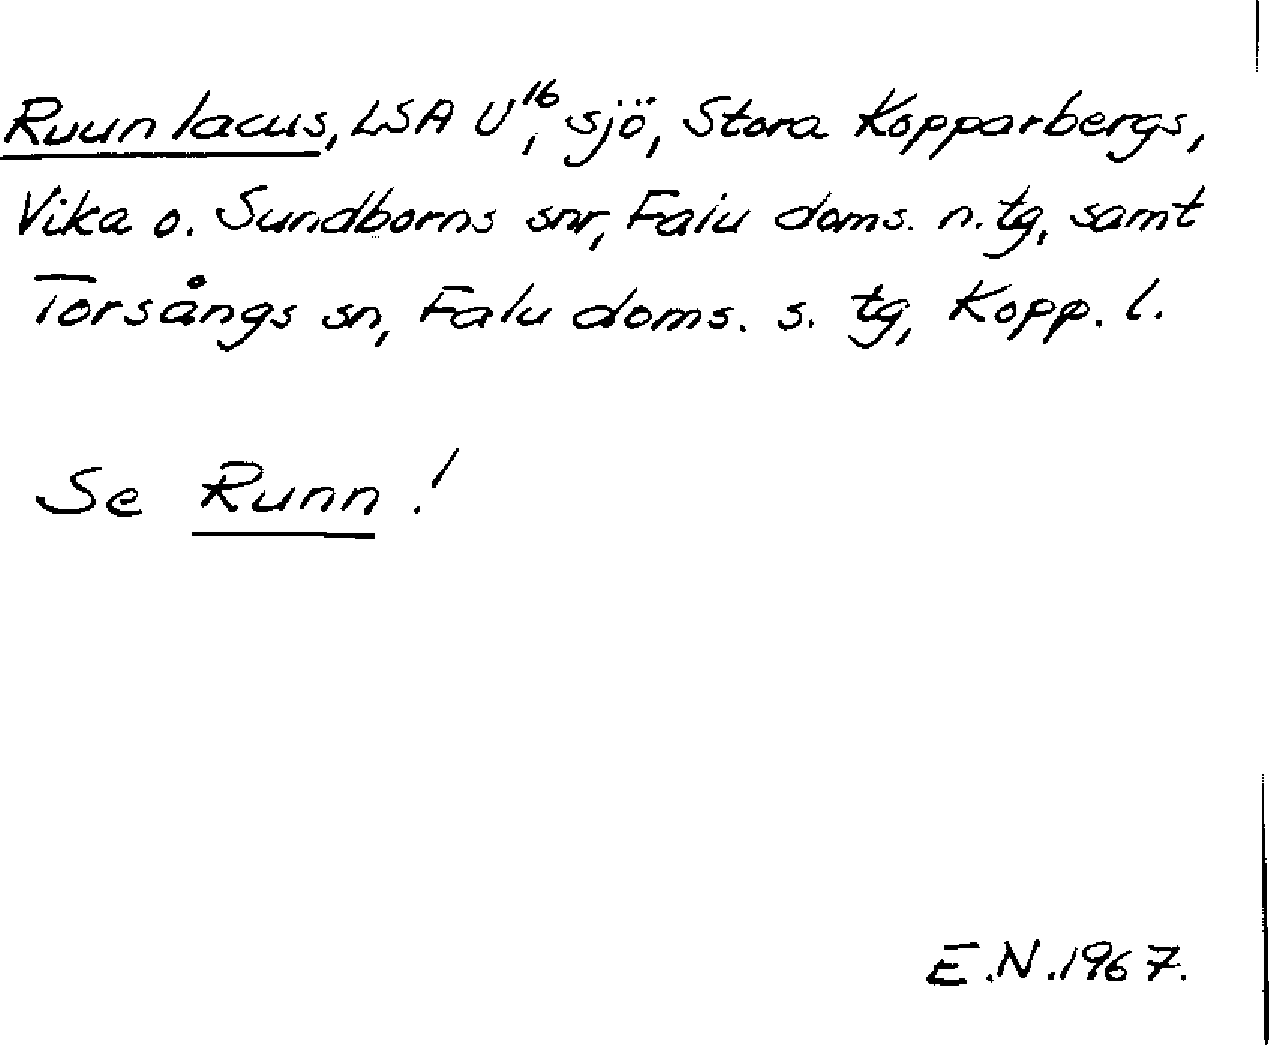 Ruun lacus, LSA U¹⁶, sjö, Stora Kopparbergs,
Vika o. Sundborns snr, Falu doms. n. tg, samt
Torsångs sn, Falu doms. s. tg, Kopp. l.
Se Runn!
E.N.1967.